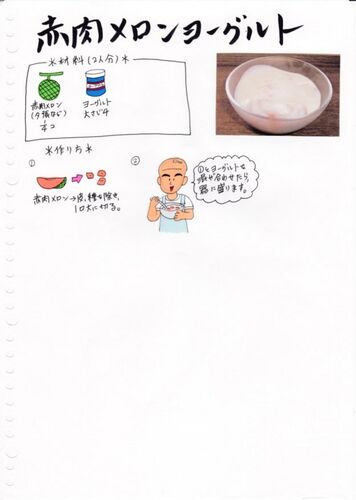 赤肉メロンヨーグルト
*材料(2人分)*
赤肉メロン
(夕張など)
1/4コ
ヨーグルト
大さじ4
*作り方*
①
赤肉メロン→皮、種を除き、
1口大に切る。
②
①とヨーグルトを
混ぜ合わせたら、
器に盛ります。